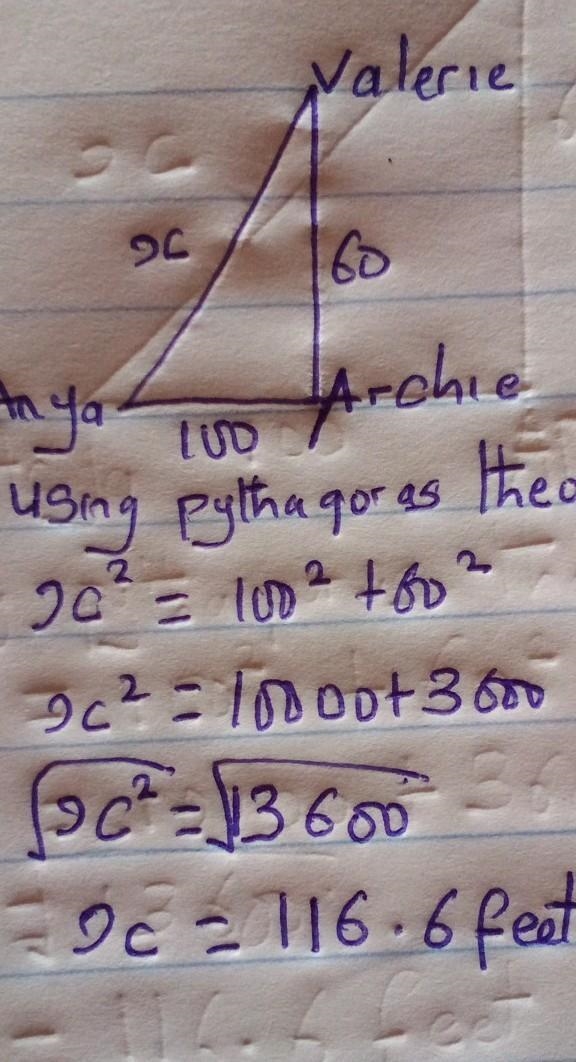 Valerie
x
60
Anya
Archie
100
Using pythagoras theo
x² = 100² + 60²
x² = 10000 + 3600
√x² = √13600
x = 116.6 feet